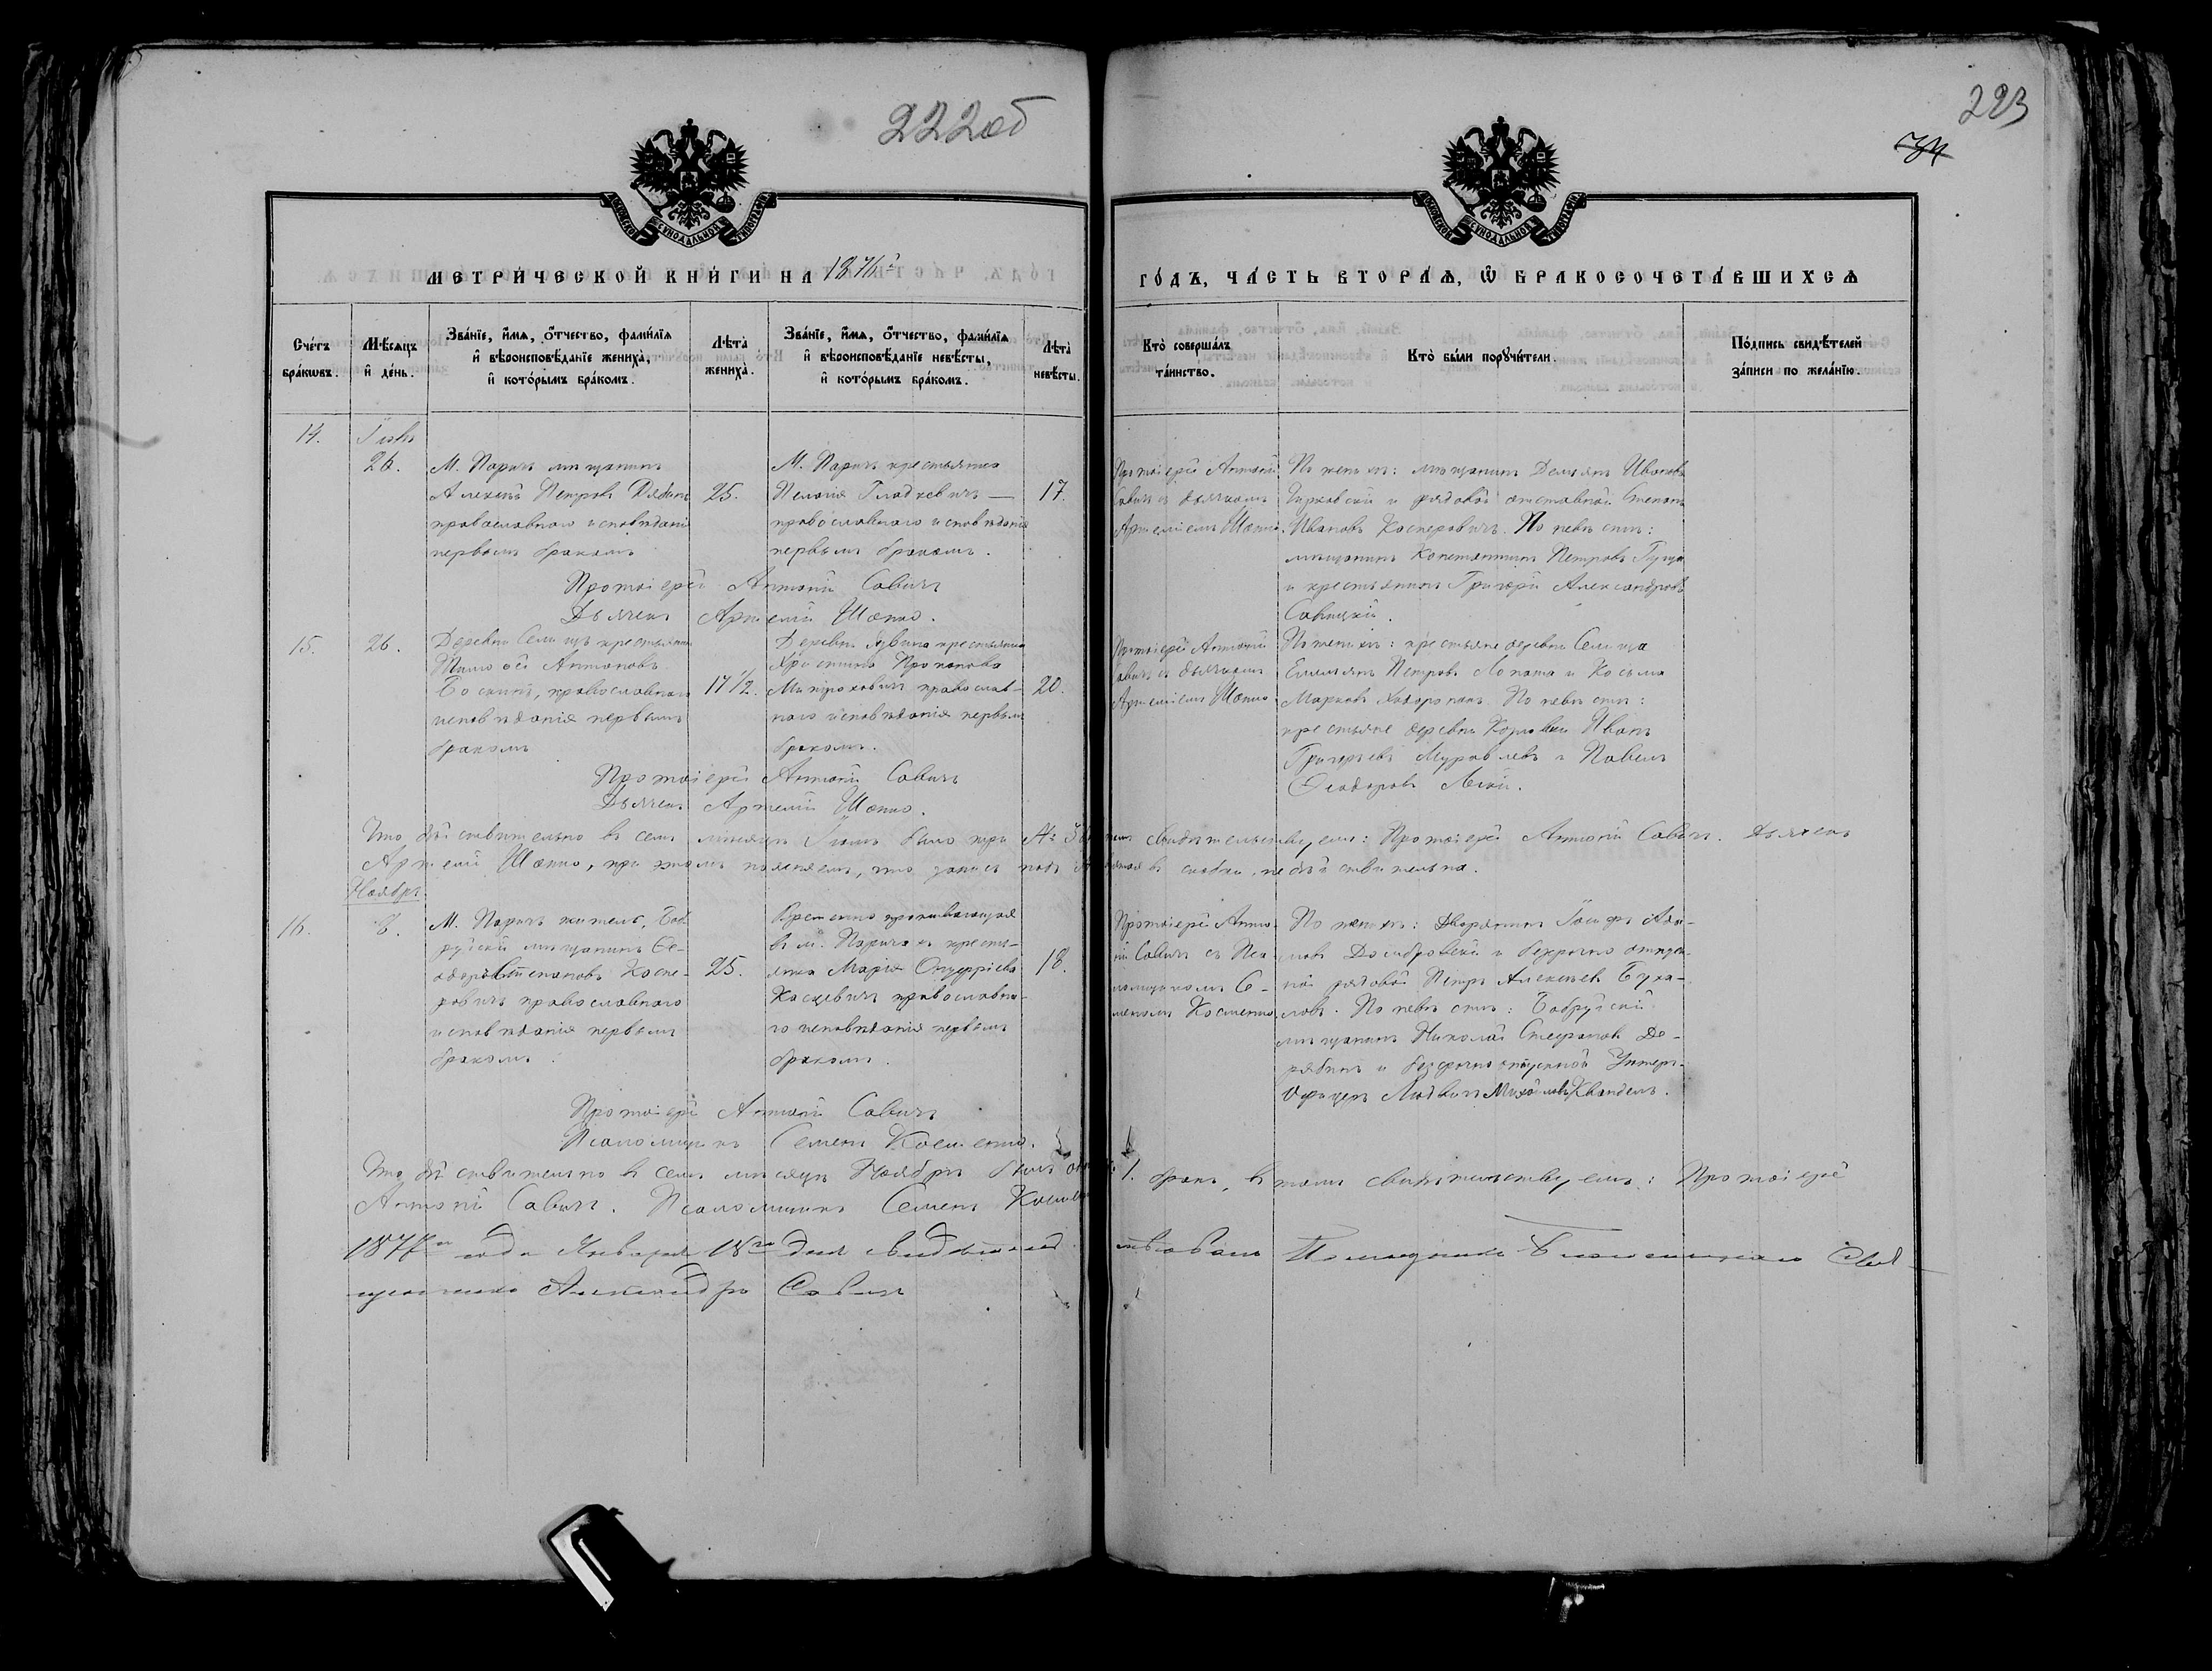 222об
223
МЕТРИ́ЧЕСКОЙ КНИ́ГИ НА 1876й
ГО́ДЪ, ЧА́СТЬ ВТОРА́Я, Ѽ БРАКОСОЧЕТА́ВШИХСЯ
Сче́тъ бра́кωвъ.
Мѣ́сяцъ и҆ де́нь.
Зва́нїе, и҆́мя, ѻ҆́тчество, фами́лїя
и҆ вѣроисповѣ́данїе жениха̀,
и҆ кото́рымъ бра́комъ.
Лѣта̀ жениха̀.
Зва́нїе, и҆́мя, ѻ҆́тчество, фами́лїя
и҆ вѣроисповѣ́данїе невѣ́сты,
и҆ кото́рымъ бра́комъ.
Лѣта̀ невѣ́сты.
Кто̀ соверша́лъ та́инство.
Кто̀ бы́ли порꙋчи́тели.
По́дпись свидѣ́телей за́писи по жела́нїю.
14.
26.
М. Паричъ мѣщанинъ
Алексѣй Петровъ
православнаго исповѣданія
первымъ бракомъ
25.
М. Паричъ крестьянка
Пелагія Гладкевичъ —
православнаго исповѣданія
первымъ бракомъ.
17.
Протоіерей Антоній
Савичъ съ дьячкомъ
Артеміемъ
По женихѣ: мѣщанинъ Демьянъ Ивановъ
и рядовой отставной Степанъ
Ивановъ Касперовичъ. По невѣстѣ:
мѣщанинъ Константинъ Петровъ
и крестьянинъ Григорій Александровъ
Савицкій.
Протоіерей Антоній Савичъ
Дьячекъ Артемій
15.
26.
Деревни Селища крестьянинъ
Тимоѳей Антоновъ
православнаго
исповѣданія первымъ
бракомъ
17 1/2.
Деревни крестьянка
Христина
православ-
наго исповѣданія первымъ
бракомъ.
20.
Протоіерей Антоній
Савичъ съ дьячкомъ
Артеміемъ
По женихѣ: крестьяне деревни Селища
Емельянъ Петровъ Лопата и Косьма
Марковъ По невѣстѣ:
крестьяне деревни Иванъ
Григорьевъ Муравлевъ и Павелъ
Ѳеодоровъ
Протоіерей Антоній Савичъ
Дьячекъ Артемій
Что дѣйствительно въ семъ мѣсяцѣ было три свидѣтельствуемъ: Протоіерей Антоній Савичъ. Дьячекъ
Артемій при этомъ поясняемъ, что запись подъ въ скобки, недѣйствительна.
Ноябрь
16.
8.
М. Паричъ житель, Боб-
руйскій мѣщанинъ Ѳе-
одоръ Степановъ Каспе-
ровичъ православнаго
исповѣданія первымъ
бракомъ.
25.
Временно проживающая
въ м. Паричахъ кресть-
янка Марія Онуфріева
Касцевичъ православна-
го исповѣданія первымъ
бракомъ.
18.
Протоіерей Анто-
ній Савичъ съ Пса-
ломщикомъ Се-
меномъ
По женихѣ: Дворянинъ Іосифъ
Домбровскій и безсрочно отпуск-
ной рядовой Петръ Алексѣевъ Буха-
ловъ. По невѣстѣ: Бобруйскій
мѣщанинъ Николай Стефановъ Де-
рябинъ и безсрочно отпускной Унтеръ-
Офицеръ Людвигъ
Протоіерей Антоній Савичъ
Псаломщикъ Семенъ
Что дѣйствительно въ семъ мѣсяцѣ Ноябрѣ былъ 1. бракъ, въ томъ свидѣтельствуемъ: Протоіерей
Антоній Савичъ. Псаломщикъ Семенъ
1877го года Января 18го дня свидѣтельствовалъ Помощникъ Благочиннаго Свя-
щенникъ Александръ Савичъ